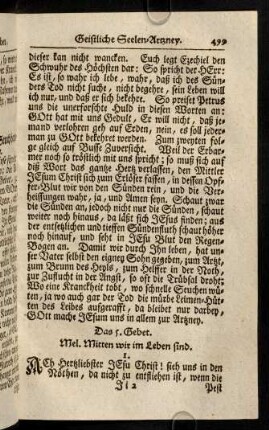 Geistliche Seelen-Artzney. 499
dieser kan nicht wancken. Euch legt Ezechiel den
Schwuhr des Höchsten dar: So spricht der HErr:
Es ist, so wahr ich lebe, wahr, daß ich des Sün-
ders Tod nicht suche, nicht begehre, sein Leben will
ich nur, und daß er sich bekehre. So preiset Petrus
uns die unerforschte Huld in diesen Worten an:
GOtt hat mit uns Gedult, Er will nicht, daß je-
mand verlohren geh auf Erden, nein, es soll jeder-
man zu GOtt bekehret werden. Zum zweyten fol-
ge gleich auf Busse Zuversicht. Weil der Erbar-
mer noch so tröstlich mit uns spricht; so muß sich auf
diß Wort das gantze Hertz verlassen, den Mittler
JEsum Christ sich zum Erlöser fassen, in dessen Opf-
fer-Blut wir von den Sünden rein, und die Ver-
heissungen wahr, ja, und Amen seyn. Schaut zwar
die Sünden an, jedoch nicht nur die Sünden, schaut
weiter noch hinaus, da läst sich JEsus finden; aus
der entsetzlichen und tieffen Sündenfluth schaut höher
noch hinauf, und seht in JEsu Blut den Regen-
Bogen an. Damit wir durch Ihn leben, hat un-
ser Vater selbst den eignen Sohn gegeben, zum Artzt,
zum Brunn des Heyls, zum Helffer in der Noth,
zur Zuflucht in der Angst, so oft die Trübsal droht:
Wo eine Kranckheit tobt, wo schnelle Seuchen wü-
ten, ja wo auch gar der Tod die mürbe Leimen-Hüt-
ten des Leibes aufgerafft, da bleibet nur darbey,
GOtt mache JEsum uns in allem zur Artzney.
Das 5. Gebet.
Mel. Mitten wir im Leben sind.
1.
ACh Hertzliebster JEsu Christ! sieh uns in den
Nöthen, da nicht zu entfliehen ist, wenn die
Ji 2 Pest